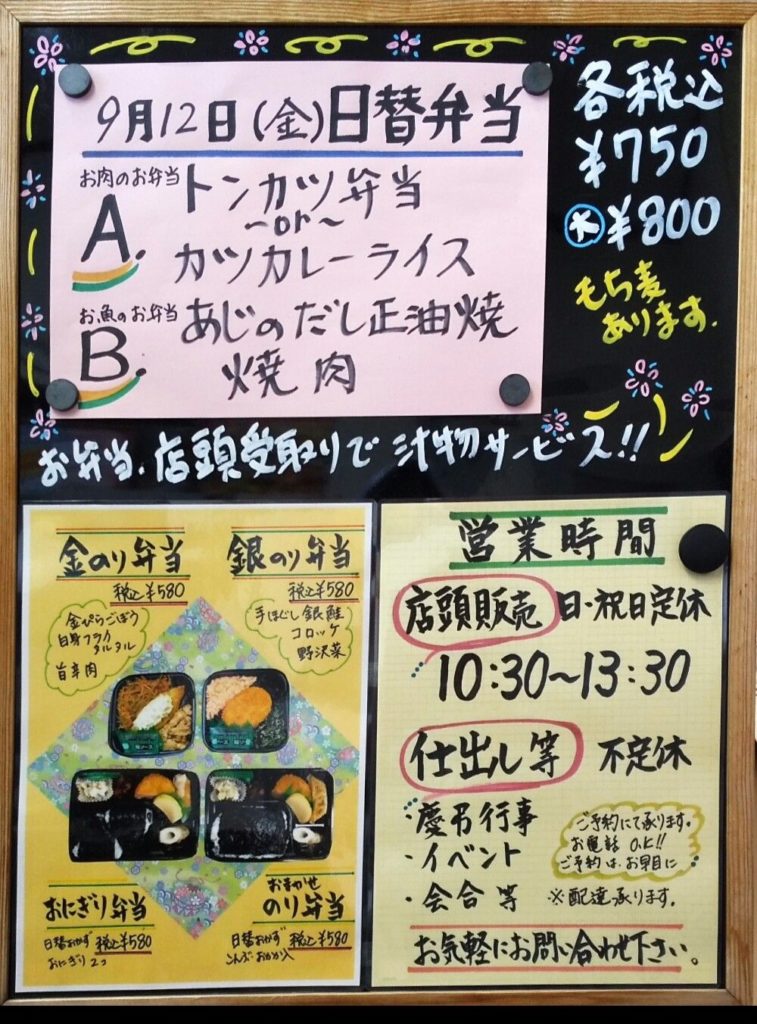 9月12日(金)日替弁当
お肉のお弁当
A.
トンカツ弁当
~or~
カツカレーライス
お魚のお弁当
B.
あじのだし正油焼
焼肉
各税込
¥750
大¥800
もち麦
あります.
お弁当.店頭受取りで汁物サービス!!
金のり弁当
税込¥580
金ぴらごぼう
白身フライ
タルタル
旨辛肉
銀のり弁当
税込¥580
手ほぐし銀鮭
コロッケ
野沢菜
おにぎり弁当
日替おかず 税込¥580
おにぎり2つ
おまかせ
のり弁当
日替おかず 税込¥580
こんぶ・おかか入
営業時間
店頭販売 日・祝日定休
10:30~13:30
仕出し等 不定休
・慶弔行事
・イベント
・会合等
ご予約にて承ります。
お電話OK!!
ご予約は、お早目に
※配達承ります。
お気軽にお問い合わせ下さい。